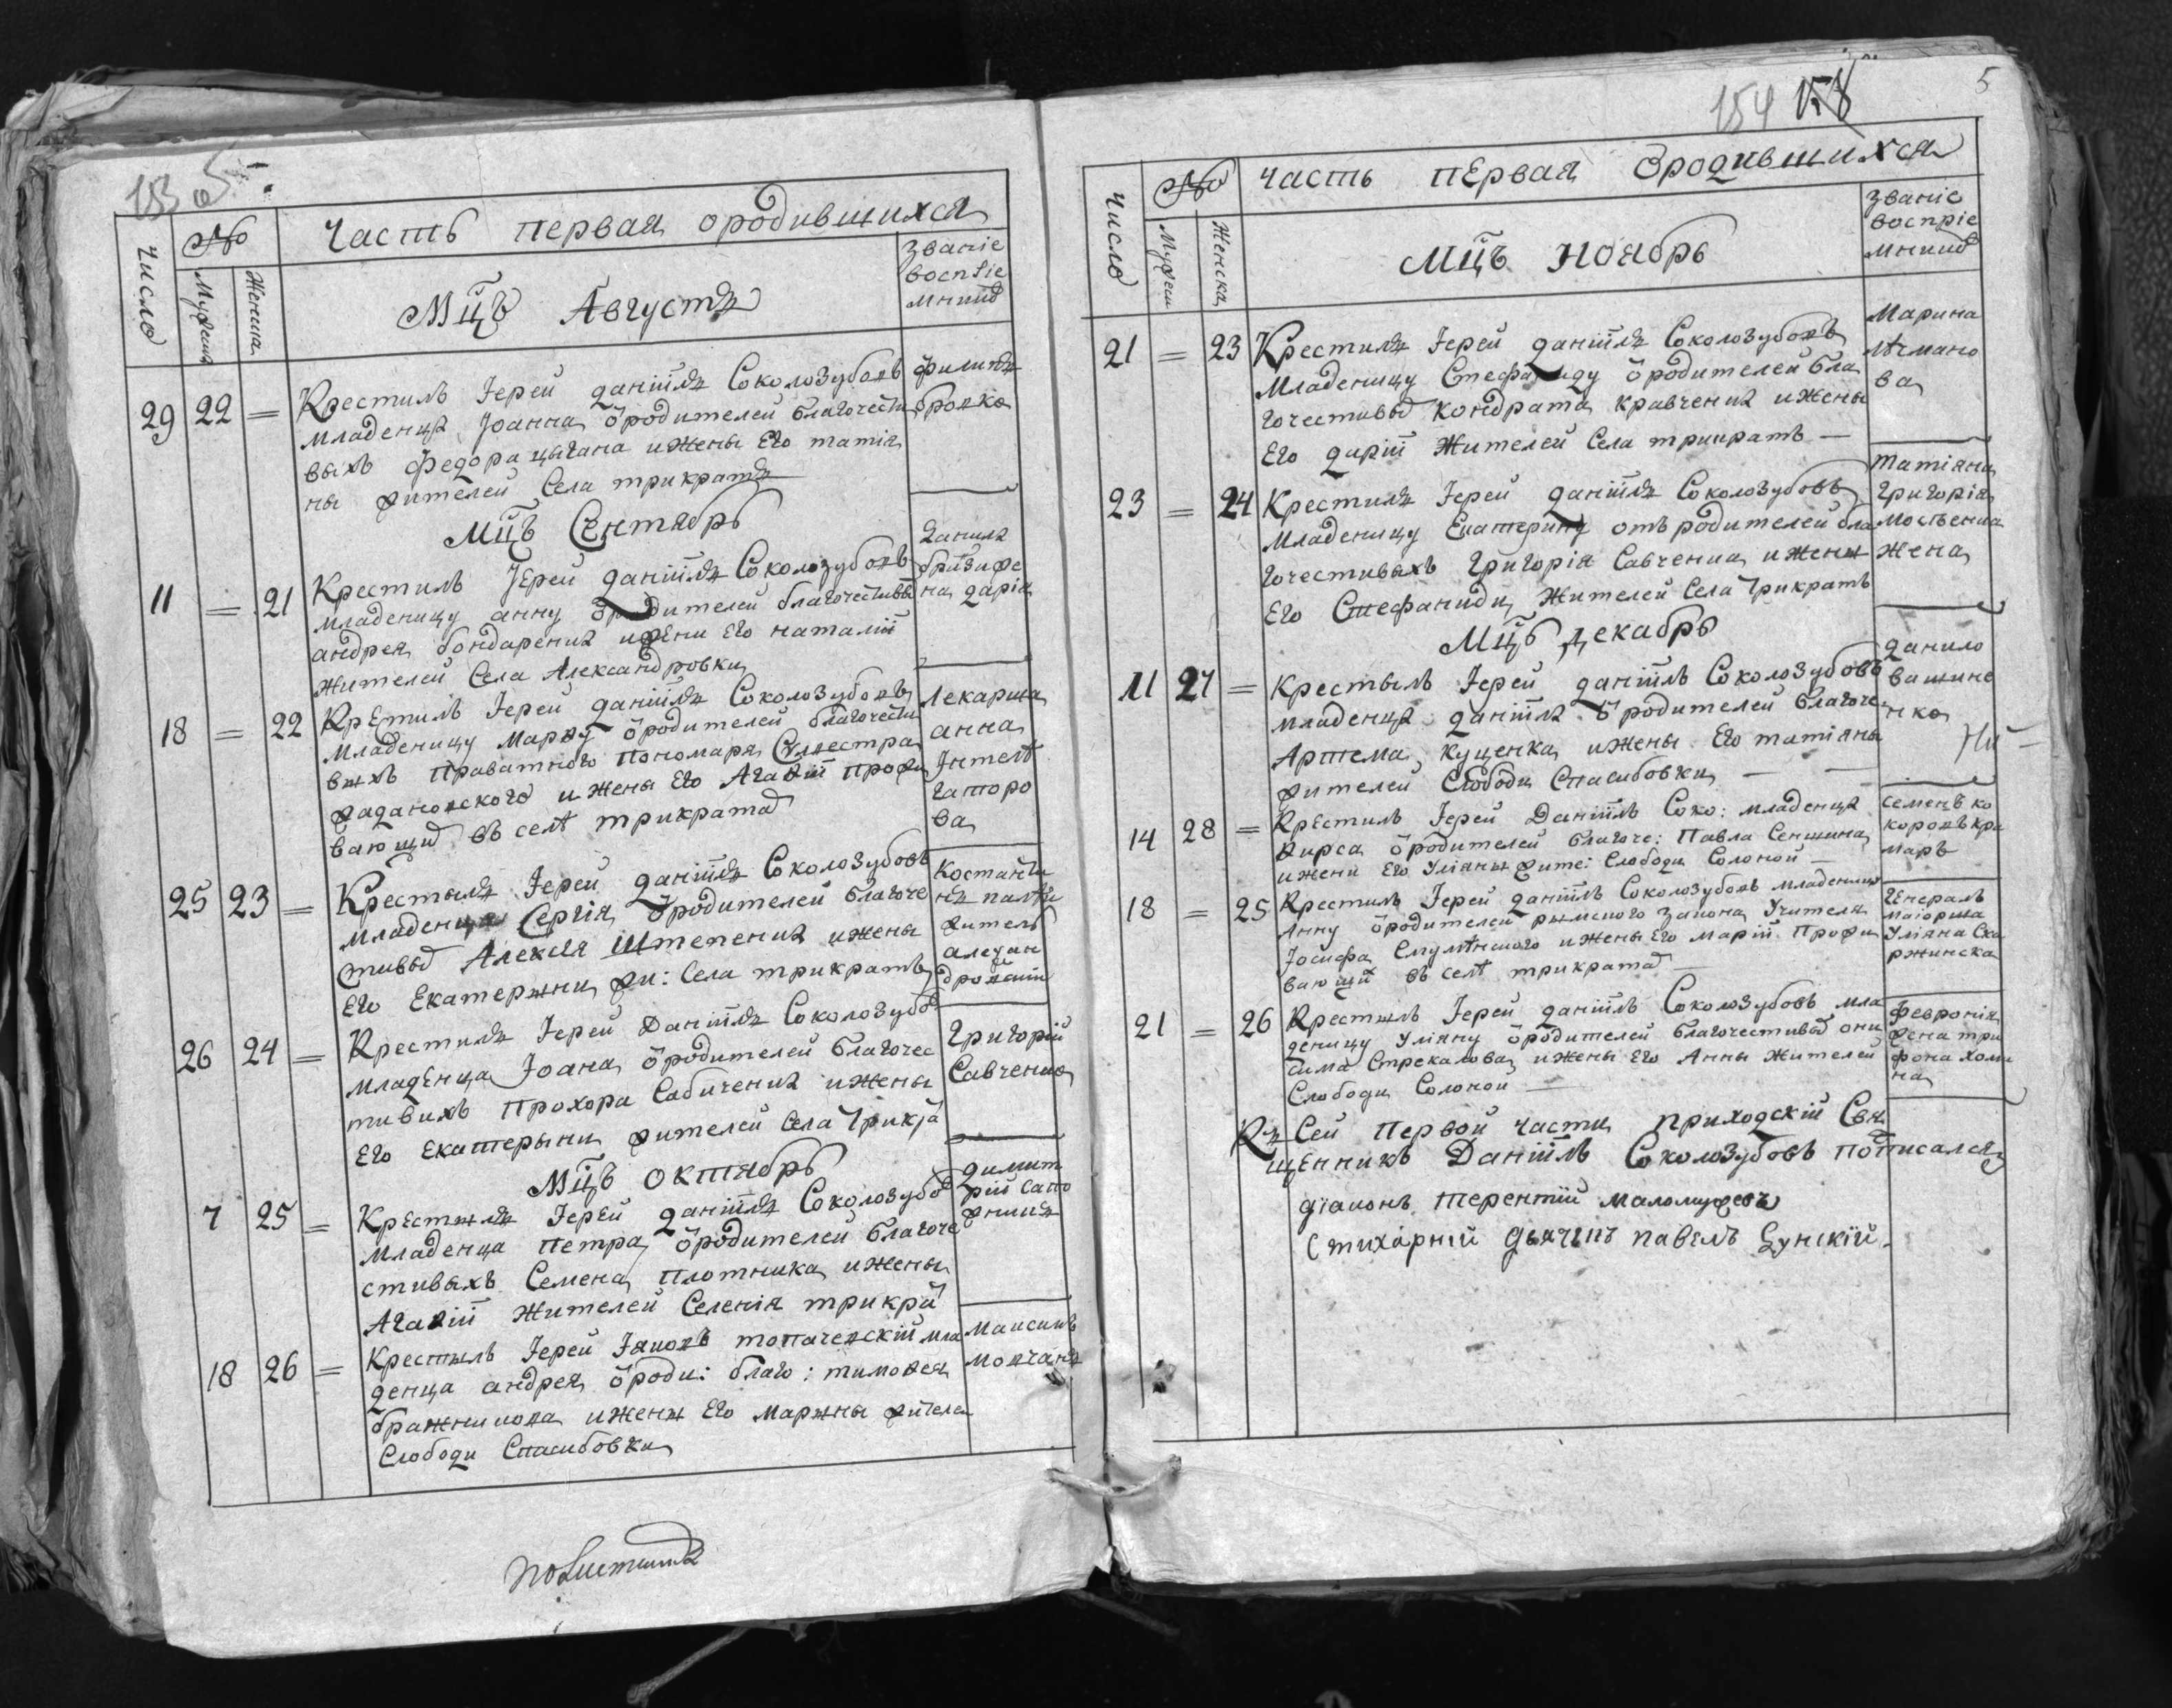 153
№
Часть первая ородившихся
Число
Женска
Званіе
воспріе
Мцъ Августъ
29 22 = Крестилъ Іерей даніилъ Соколозубовъ
младенца Іоанна ѿродителей благочести
выхъ Федора цыгана ижены Его татія
ны жителей Села трикратъ
Филипъ
бровко
Мцъ Сентябрь
11 = 21 Крестилъ Іерей даніилъ Соколозубовъ
младеницу анну ѿродителей благочестивы
андрея бондаренка ижени Его наталіи
жителей Села Александровки
на дарія
18 = 22 Крестилъ Іерей даніилъ Соколозубовъ
младеницу Марѳу ѿродителей благочести
выхъ приватного пономаря
ижены Его Агаѳіи прожи
вающих въ селѣ трикратах
Лекарша
анна
25 23 = Крестылъ Іерей даніилъ Соколозубовъ
младенца Сергія ѿродителей благоче
стивых Алексѣя Штепенка ижены
Его Екатерыни жи: Села трикратъ
Костанти
житель
26 24 = Крестилъ Іерей Даніилъ Соколозубо
младенца Іоана ѿродителей благочес
тивихъ Прохора Сабиченка ижены
Его Екатерыни жителей Села Трикра
Григорій
Савченко
Мцъ октябрь
7 25 = Крестылъ Іерей даніилъ Соколозубо
младенца петра ѿродителей благоче
стивыхъ Семена плотника ижены
Агаѳіи Жителей Селенія трикра
димит
рій сапо
жникъ
18 26 = Крестылъ Іерей Іаковъ топачевскій мла
денца андрея ѿроди: благо: тимоѳея
бражникова ижены Его Марыны жителе
Слободи Спасибовки
Максимъ
молчанъ
154 158
5
№
Часть первая Ородившихся
Число
Женска
Званіе
воспріе
Мцъ Ноябрь
21 = 23 Крестилъ Іерей даніилъ Соколозубовъ
младеницу Стефаниду ѿродителей бла
гочестивых кондрата кравченка ижены
Его даріи Жителей Села трикратъ
Марина
ва
23 = 24 Крестилъ Іерей даніилъ Соколозубовъ
младеницу Екатерину отъ родителей бла
гочестивыхъ Григорія Савченка ижены
Его Стефаниди Жителей Села Трикратъ
татіяна
григорія
жена
Мцъ декабрь
11 27 = Крестылъ Іерей даніилъ Соколозубовъ
младенца даніила ѿродителей благоче
Артема Куценка ижены Его татіяны
жителей Слободи Спасибовки
данило
ващине
нко
14 28 = Крестилъ Іерей Даніилъ Соко: младенца
Кирса ѿродителей благоче: Павла Сеншина
ижени Его Уліяны жите: Слободи Солоной
18 = 25 Крестилъ Іерей даніилъ Соколозубовъ младеницу
Анну ѿродителей рымского закона Учителя
Іосифа ижены Его Маріи Прожи
вающи въ селѣ трикратах
Генералъ
маіорша
Уліяна Ска
ржинска
21 = 26 Крестылъ Іерей даніилъ Соколозубовъ мла
деницу Уліяну ѿродителей благочестивых они
сима Стрекалова ижены Его Анны Жителей
Слободи Солоной
Февронія
жена три
фона хоми
на
Къ Сей Первой части приходскій Свя
щенникъ Даніилъ Соколозубовъ потписался
діаконъ терентій
Стихарній дьячекъ павелъ